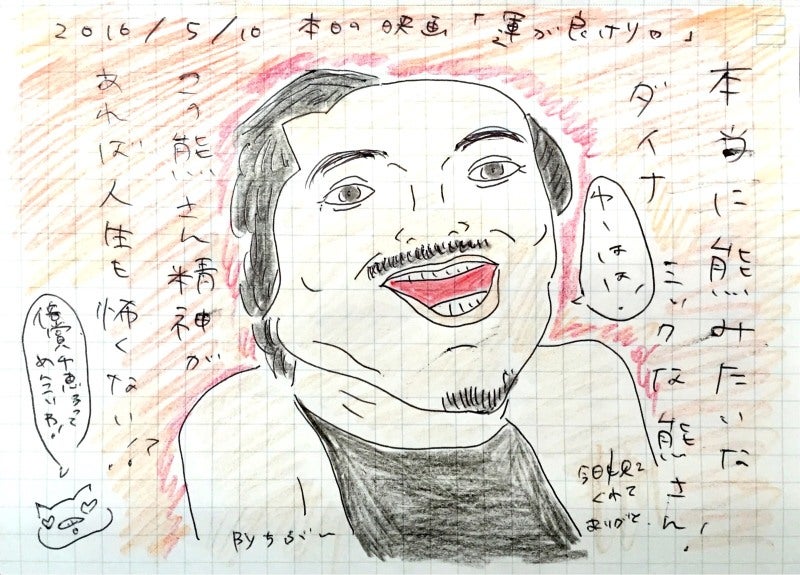 2016/5/10 本日の映画「運が良けりゃ」
本当に熊みたいな
ダイナミックな熊さん!
わーはは!
この熊さん精神が
あれば人生も怖くない!?
倍賞千恵子って
めんこいわ!
今日も見に
くれて
ありがと
Byちぶー